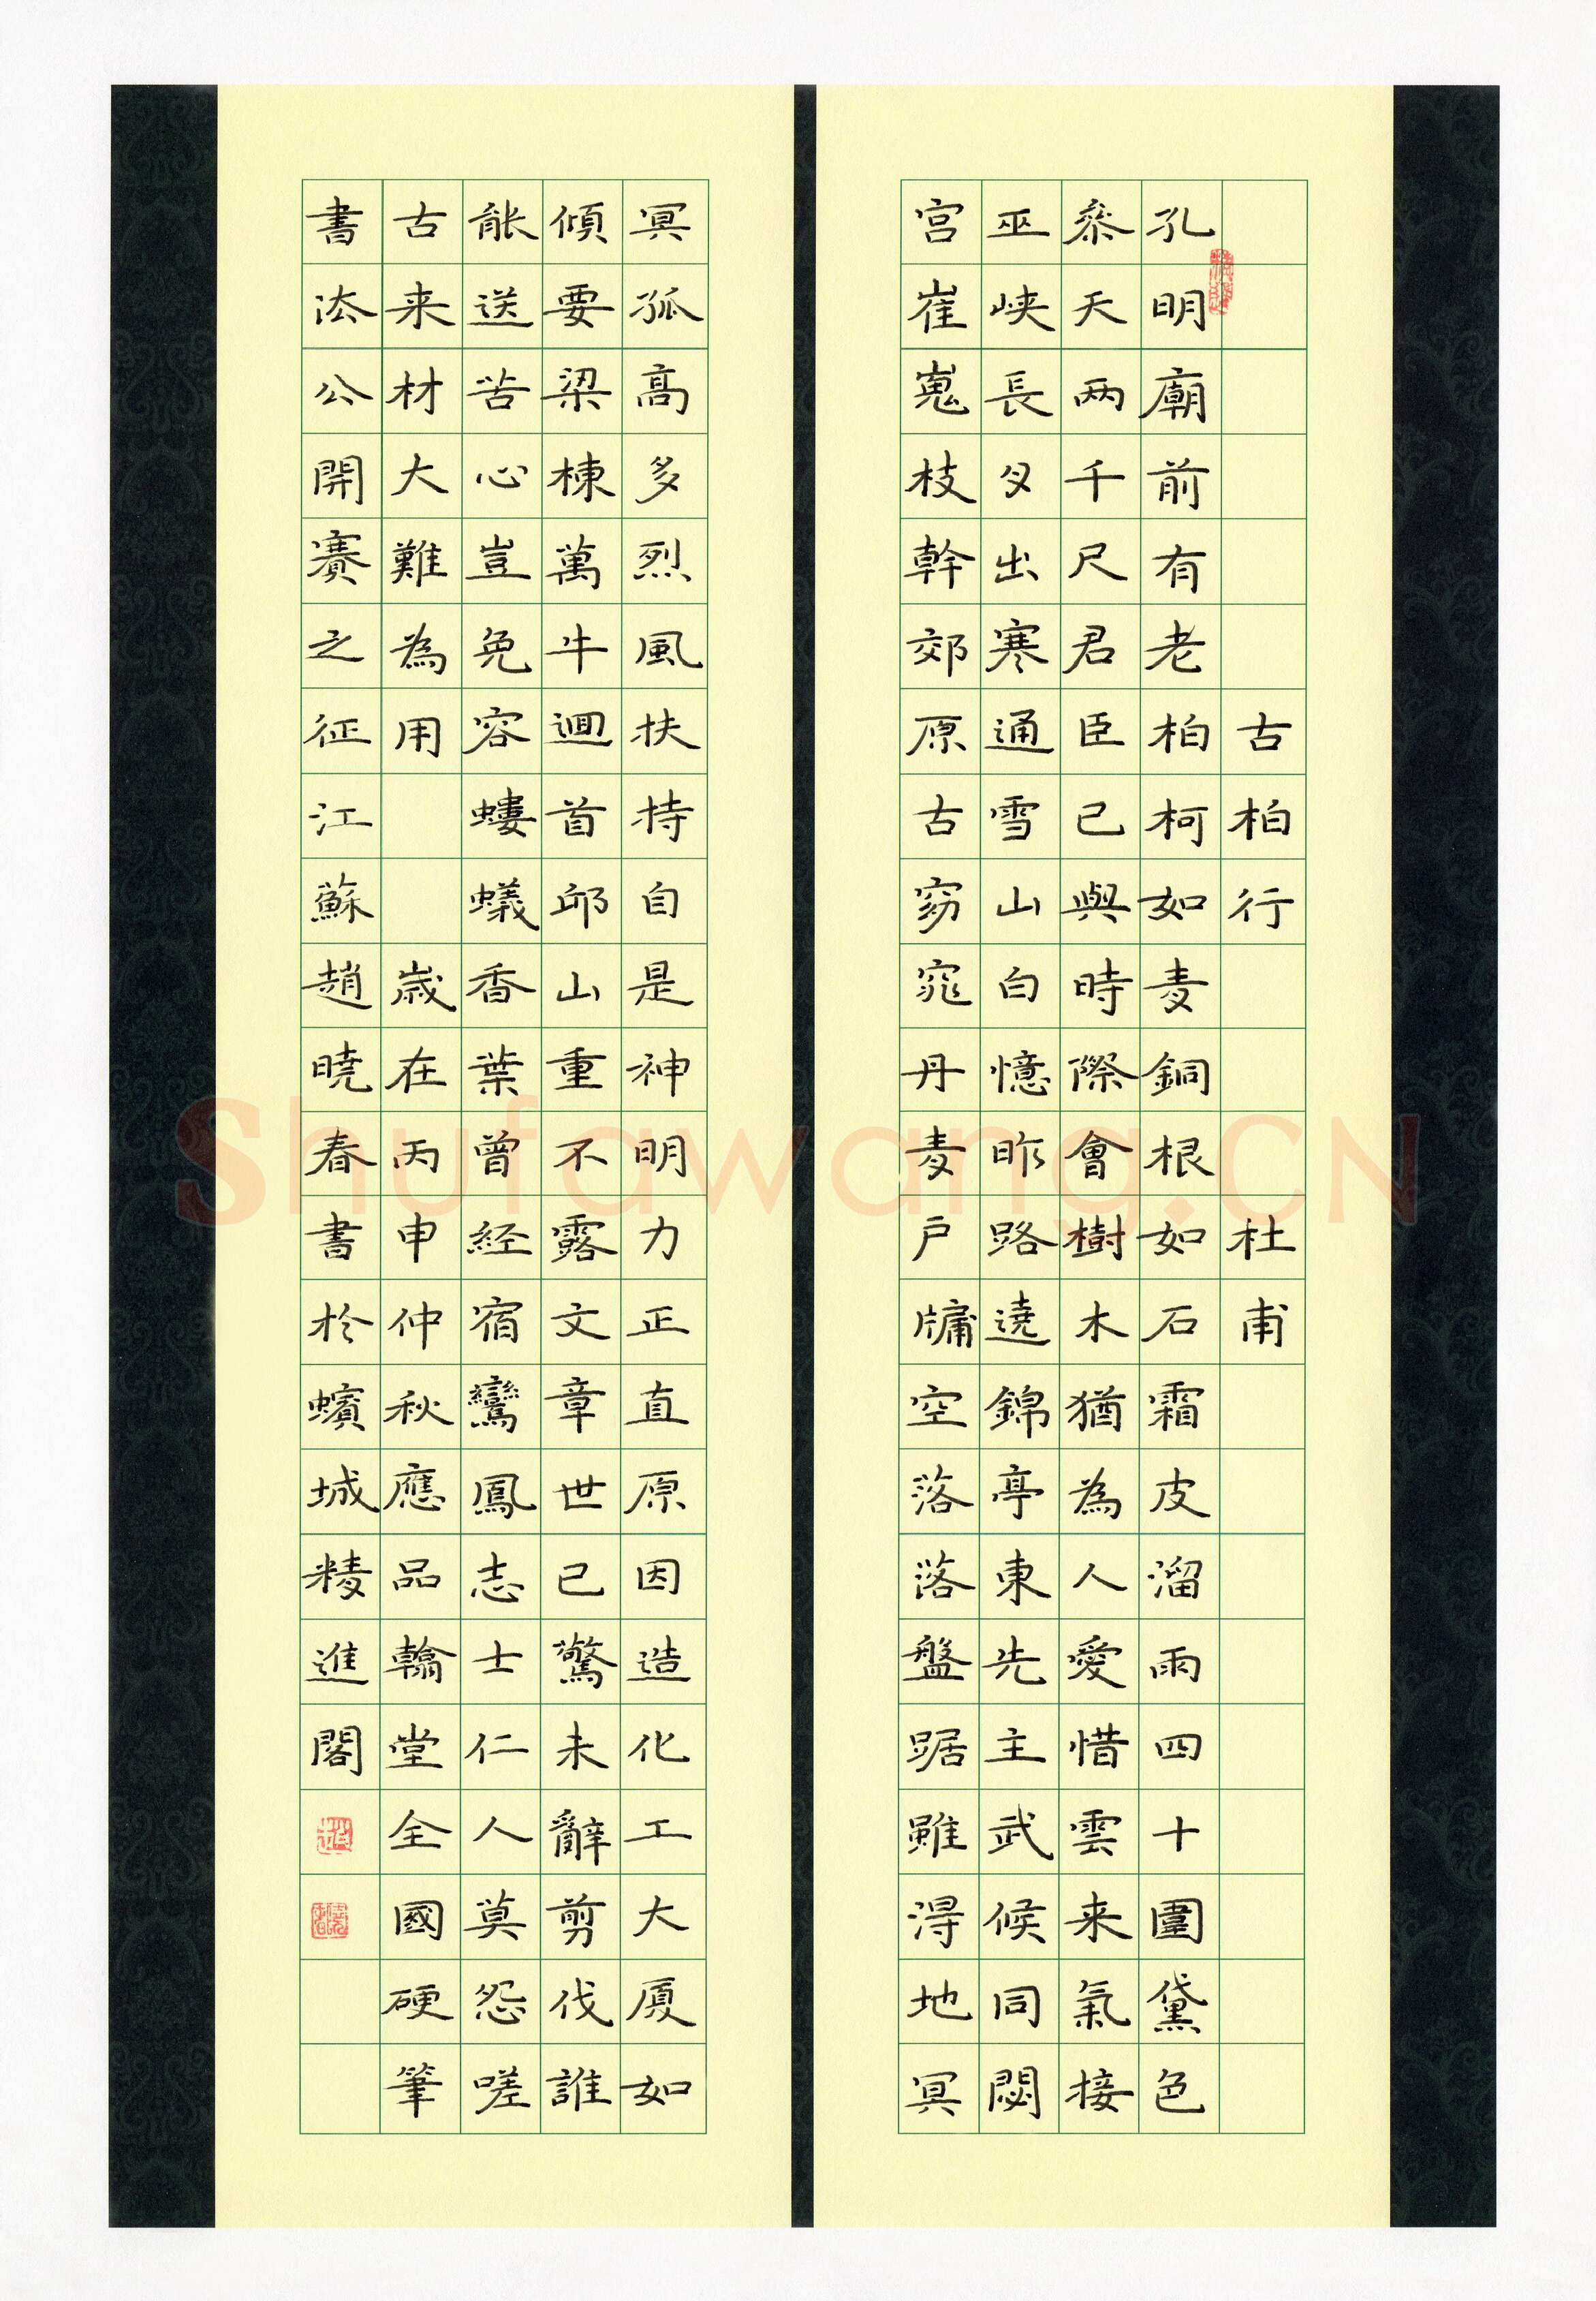 古柏行 杜甫
孔明廟前有老柏柯如青銅根如石霜皮溜雨四十圍黛色
叅天两千尺君臣已與時際會樹木猶為人愛惜雲来氣接
巫峡長月出寒通雪山白憶昨路遶錦亭東先主武侯同閟
宫崔嵬枝幹郊原古窈窕丹青户牖空落落盤踞雖得地冥
冥孤高多烈風扶持自是神明力正直原因造化工大厦如
傾要梁棟萬牛迴首邱山重不露文章世已驚未辭剪伐誰
能送苦心豈免容螻蟻香葉曾經宿鸞鳳志士仁人莫怨嗟
古来材大難為用 歲在丙申仲秋應品翰堂全國硬筆
書法公開賽之征江蘇趙曉春書於蠙城精進閣
Shufawang.CN